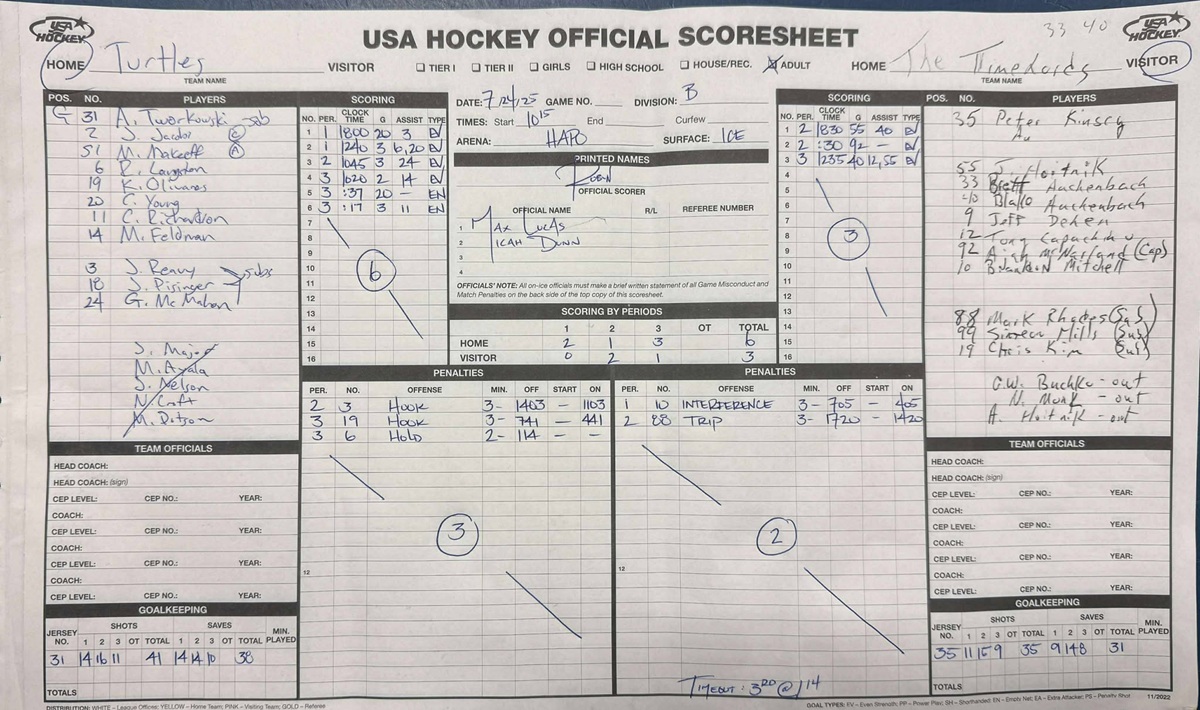 USA HOCKEY
USA HOCKEY OFFICIAL SCORESHEET
33 40
USA HOCKEY
HOME Turtles VISITOR
TEAM NAME
☐ TIER I ☐ TIER II ☐ GIRLS ☐ HIGH SCHOOL ☐ HOUSE/REC. ☒ ADULT
HOME The Timelords VISITOR
TEAM NAME
POS. NO. PLAYERS
G 31 A. Tworkowski - sub
2 J. Jacobs C
51 M. Makeeff A
6 R. Langston
19 K. Olivares
20 C. Young
11 C. Richardson
14 M. Feldman
3 J. Reavy
18 J. Pisinger subs
24 G. McMahon
J. Major
M. Ayala
J. Nelson
N. Croft
M. Dotson
SCORING
NO. PER. CLOCK TIME G ASSIST TYPE
1 1 1800 20 3 EV
2 1 1240 3 6,20 EV
3 2 1045 3 24 EV
4 3 1020 2 14 EV
5 3 :37 20 — EN
6 3 :17 3 11 EN
7
8
9
10
11
12
13
14
15
16
6
DATE: 7/24/25 GAME NO. DIVISION: B
TIMES: Start 10 15 End Curfew
ARENA: HAPO SURFACE: ICE
PRINTED NAMES
OFFICIAL SCORER
OFFICIAL NAME R/L REFEREE NUMBER
1 Max Lucas
2 Micah Dunn
3
4
OFFICIALS' NOTE: All on-ice officials must make a brief written statement of all Game Misconduct and
Match Penalties on the back side of the top copy of this scoresheet.
SCORING BY PERIODS
1 2 3 OT TOTAL
HOME 2 1 3 6
VISITOR 0 2 1 3
SCORING
NO. PER. CLOCK TIME G ASSIST TYPE
1 2 1830 55 40 EV
2 2 :30 92 — EV
3 3 1235 40 12,55 EV
4
5
6
7
8
9
10
11
12
13
14
15
16
3
POS. NO. PLAYERS
35 Peter Kinsey
55 J. Hoitnik
33 Brett Auchenbach
40 Blake Auchenbach
9 Jeff Dehen
12 Tony
92 (Cap)
10 Mitchell
88 Mark Rhodes (Sub)
99 Simeon Mills (Sub)
19 Chris Kim (Sub)
G.W. Buchko - out
N. Monk - out
A. Hoitnik - out
PENALTIES
PER. NO. OFFENSE MIN. OFF START ON
2 3 HOOK 3- 1403 — 1103
3 19 HOOK 3- 741 — 441
3 6 HOLD 2- 114 — —
12
3
PENALTIES
PER. NO. OFFENSE MIN. OFF START ON
1 10 INTERFERENCE 3- 705 — 405
2 88 TRIP 3- 1720 — 1420
12
2
TIMEOUT: 3RD @ 114
TEAM OFFICIALS
HEAD COACH:
HEAD COACH: (sign)
CEP LEVEL: CEP NO.: YEAR:
COACH:
CEP LEVEL: CEP NO.: YEAR:
COACH:
CEP LEVEL: CEP NO.: YEAR:
COACH:
CEP LEVEL: CEP NO.: YEAR:
GOALKEEPING
SHOTS SAVES
JERSEY NO. 1 2 3 OT TOTAL 1 2 3 OT TOTAL MIN. PLAYED
31 14 16 11 41 14 14 10 38
TOTALS
TEAM OFFICIALS
HEAD COACH:
HEAD COACH: (sign)
CEP LEVEL: CEP NO.: YEAR:
COACH:
CEP LEVEL: CEP NO.: YEAR:
COACH:
CEP LEVEL: CEP NO.: YEAR:
COACH:
CEP LEVEL: CEP NO.: YEAR:
GOALKEEPING
SHOTS SAVES
JERSEY NO. 1 2 3 OT TOTAL 1 2 3 OT TOTAL MIN. PLAYED
35 11 15 9 35 9 14 8 31
TOTALS
DISTRIBUTION: WHITE – League Offices; YELLOW – Home Team; PINK – Visiting Team; GOLD – Referee
GOAL TYPES: EV – Even Strength; PP – Power Play; SH – Shorthanded; EN – Empty Net; EA – Extra Attacker; PS – Penalty Shot
11/2022